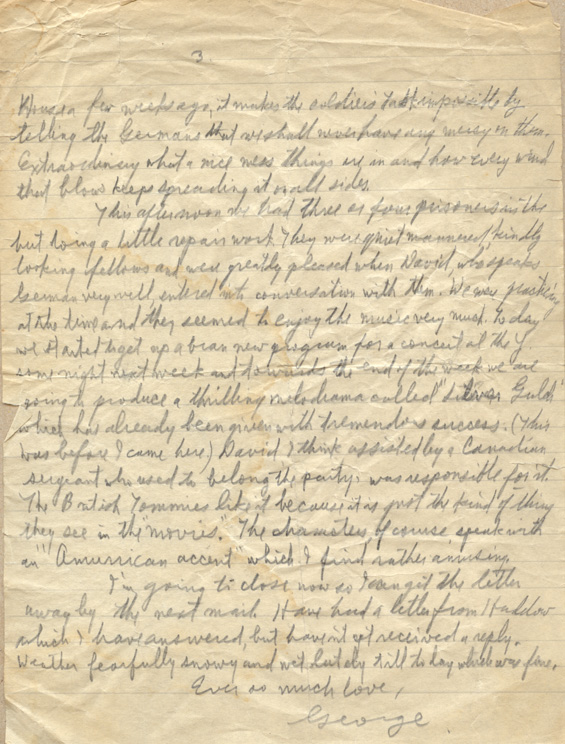 3
House a few weeks ago, it makes the soldiers task impossible by
telling the Germans that we shall never have any mercy on them.
Extraordinary what a nice mess things are in and how every wind
that blows keeps spreading it on all sides.
This afternoon we had three or four prisoners in the
hut doing a little repair work. They were quiet mannered, kindly
looking fellows and were greatly pleased when David, who speaks
German very well, entered into conversation with them. We were practicing
at the time and they seemed to enjoy the music very much. To day
we started to get up a bran new program for a concert at the Y
some night next week and towards the end of the week we are
going to produce a thrilling melodrama called " Gulch"
which has already been given with tremendous success. (This
was before I came here) David I think assisted by a Canadian
sergeant who used to belong the party, was responsible for it.
The British Tommies like it because it is just the kind of thing
they see in the "movies". The characters of course speak with
an "Amurrican accent" which I find rather amusing.
I'm going to close now so I can get the letter
away by the next mail. Have had a letter from
which I have answered, but haven't yet received a reply.
Weather fearfully snowy and wet lately till to day which was fine.
Ever so much love,
George